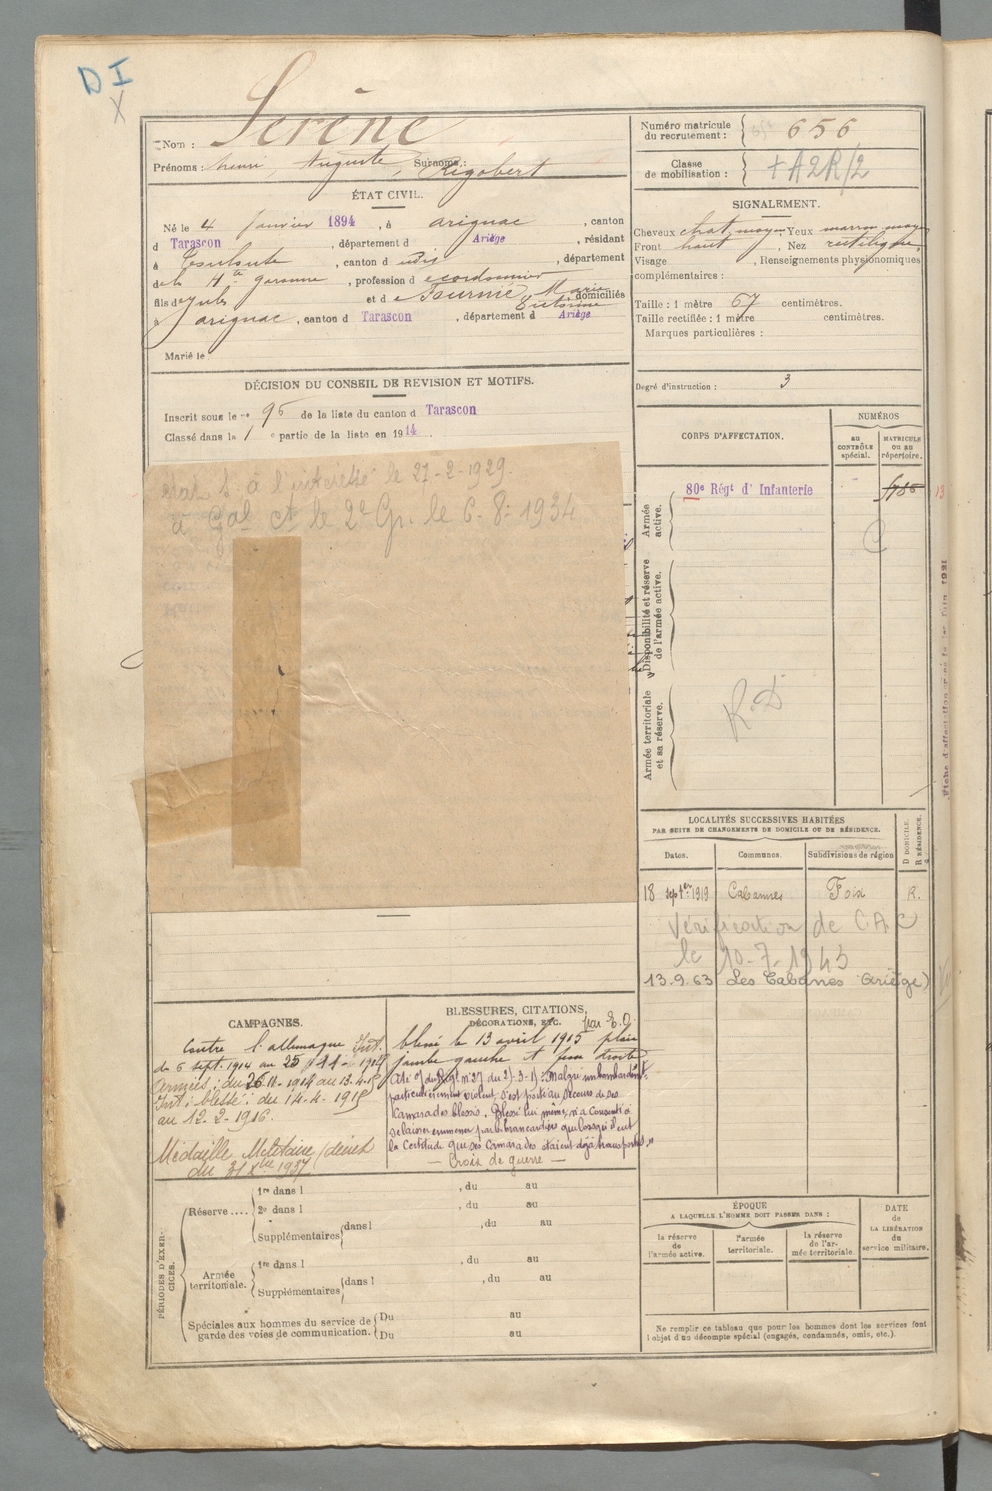 DI
X
Nom : Serène
Prénoms : henri, Auguste, Surnoms : Rigobert
ÉTAT CIVIL.
Né le 4 Janvier 1894, à arignac, canton
d Tarascon, département d Ariège, résidant
à Toulouse, canton d udis, département
de la Hte garonne, profession d cordonnier
fils de Jules et d e Fournié Marie domiciliés
à arignac, canton d Tarascon, département d Ariège
Marié le
DÉCISION DU CONSEIL DE REVISION ET MOTIFS.
Inscrit sous le n° 95 de la liste du canton d Tarascon
Classé dans la 1 e partie de la liste en 1914.
à l'intéressé le 27-2-1929.
à Gal et le 2e Gp. le 6-8-1934
CAMPAGNES.
Contre l'allemagne Int.
de 6 sept. 1914 au 25
armées : du 26-11-1914 au 13-4-15
Int : blessé : du 14-4-1915
au 12-2-1916.
Médaille Militaire (décret
du 31 Xbre 1937
BLESSURES, CITATIONS,
DÉCORATIONS, ETC.
par E. O.
blessé le 13 avril 1915 plaie
jambe gauche et droite
Cité o/ du Régt n° 27 du : Malgré un bombardemt
particulièrement violent, s'est porté au secours de ses
Camarades blessés. Blessé lui même, n'a consenti à
se laisser emmener par les brancardiers que lorsqu'il eut
la Certitude que ses Camarades étaient déjà transportés »
— Croix de guerre —
PÉRIODES D'EXERCICES.
Réserve .... 1re dans l , du au
2e dans l , du au
Supplémentaires dans l , du au
Armée territoriale. 1re dans l , du au
Supplémentaires dans l , du au
Spéciales aux hommes du service de garde des voies de communication. Du au
Du au
Numéro matricule du recrutement : 656
Classe de mobilisation : + A2R/2
SIGNALEMENT.
Cheveux chat. moyen Yeux marron moyen
Front haut, Nez rectiligne,
Visage , Renseignements physionomiques
complémentaires :
Taille : 1 mètre 67 centimètres.
Taille rectifiée : 1 mètre centimètres.
Marques particulières :
Degré d'instruction : 3
CORPS D'AFFECTATION.
NUMÉROS
AU CONTRÔLE spécial.
MATRICULE ou au répertoire.
Armée active.
80e Régt d' Infanterie
13
C
Disponibilité et réserve de l'armée active.
Armée territoriale et sa réserve.
R.D
LOCALITÉS SUCCESSIVES HABITÉES
PAR SUITE DE CHANGEMENTS DE DOMICILE OU DE RÉSIDENCE.
Dates. Communes. Subdivisions de région
D DOMICILE. R RÉSIDENCE.
18 septbre 1919 Cabannes Foix R.
Vérification de C.A C
le 10-7-1945
13.9.63 Les Cabanes Ariège)
ÉPOQUE
A LAQUELLE L'HOMME DOIT PASSER DANS :
la réserve de l'armée active.
l'armée territoriale.
la réserve de l'armée territoriale.
DATE
de
LA LIBÉRATION
du
service militaire.
Ne remplir ce tableau que pour les hommes dont les services font
l'objet d'un décompte spécial (engagés, condamnés, omis, etc.).